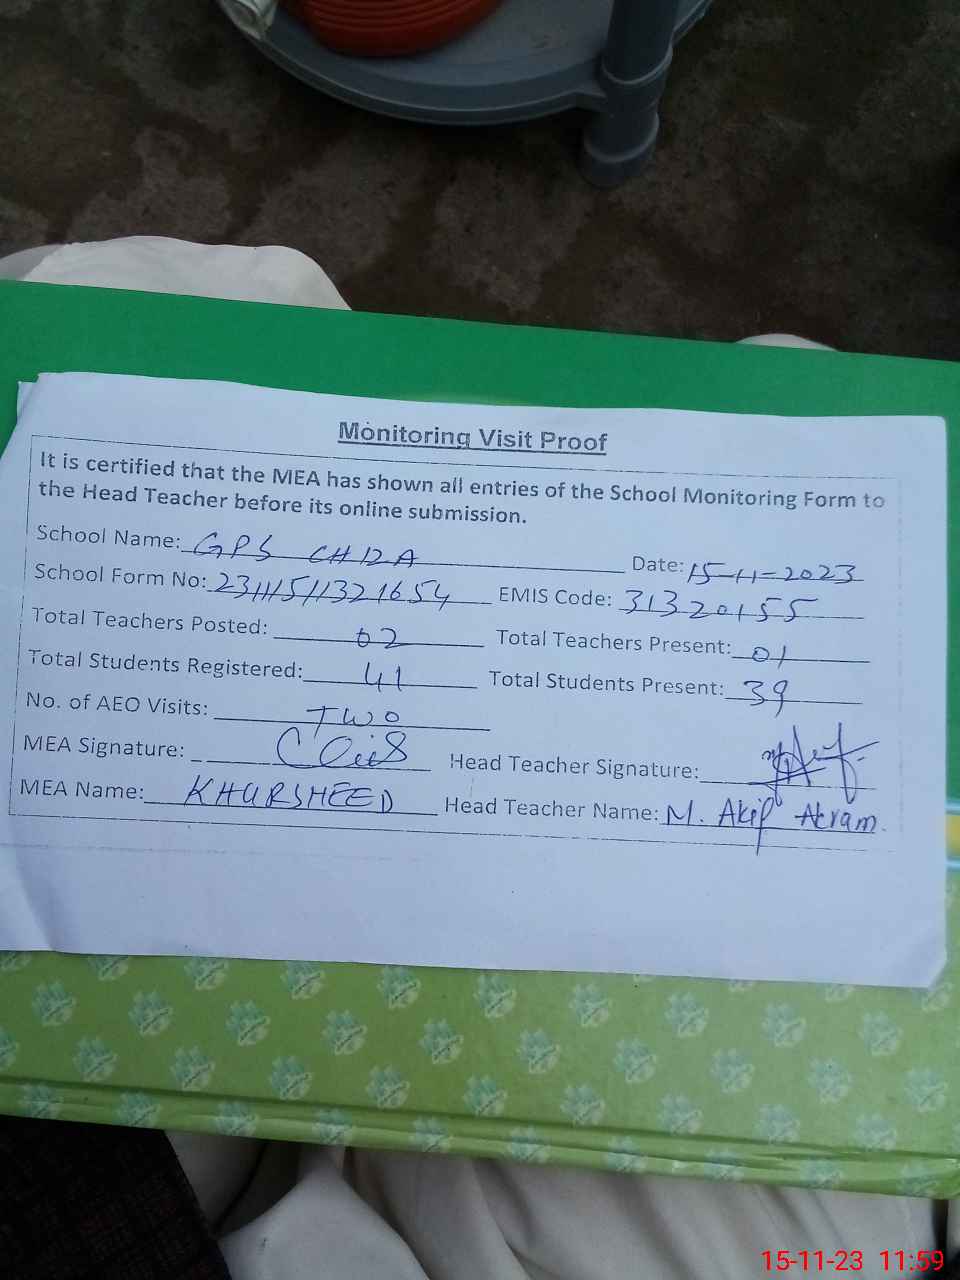 Monitoring Visit Proof
It is certified that the MEA has shown all entries of the School Monitoring Form to
the Head Teacher before its online submission.
School Name: GPS CH 12 A Date: 15-11-2023
School Form No: 23111511321654 EMIS Code: 31320155
Total Teachers Posted: 02 Total Teachers Present: 01
Total Students Registered: 41 Total Students Present: 39
No. of AEO Visits: TWO
MEA Signature: Head Teacher Signature:
MEA Name: KHURSHEED Head Teacher Name: M. Akif Akram.
15-11-23 11:59